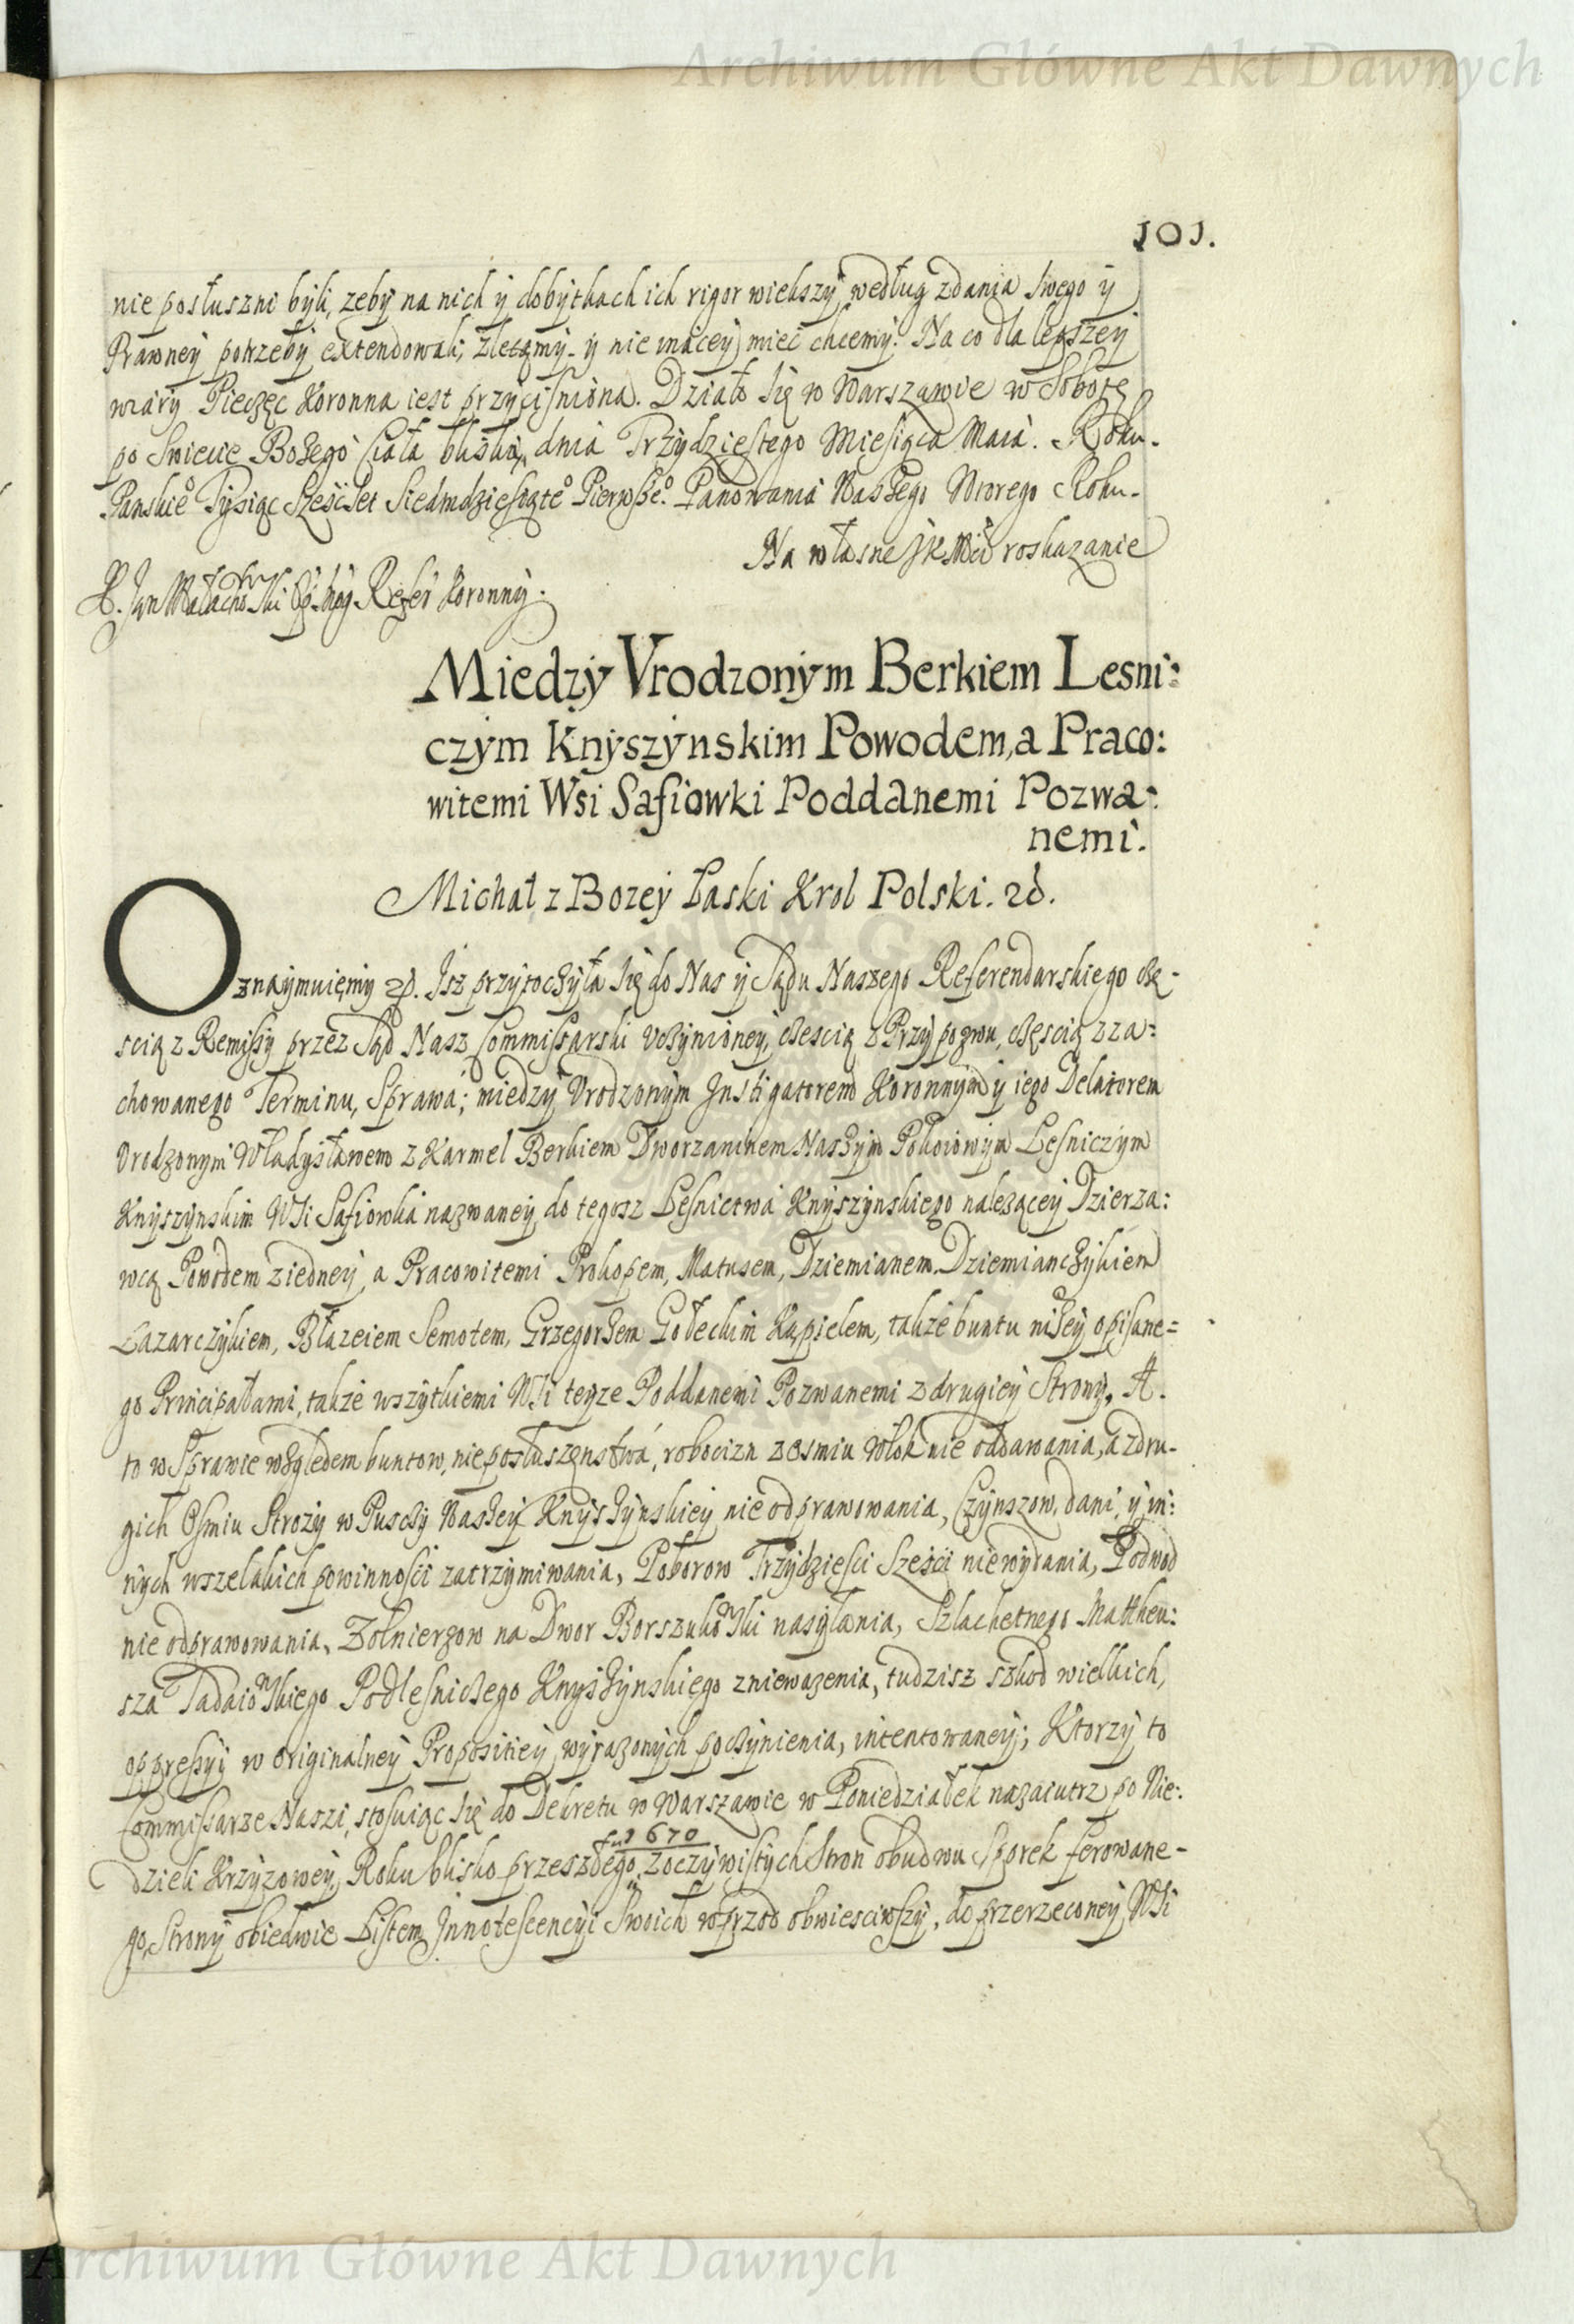 Archiwum Główne Akt Dawnych
101.
nie posłuszni byli, zeby na nich y dobytkach ich rigor wiekszy według zdania swego y
Prawney potrzeby extendowali, zlecamy y nie inaczey mieć chcemy. Na co dla lepszey
wiary Pieczęc Koronna iest przyciśniona. Działo się w Warszawie w Sobotę
po Swięcie Bozego Ciała bliską, dnia Trzydziestego Miesiąca Maia. Roku
Panskieo Tysiąc Sześćset Siedmdziesiąteo Pierwszeo. Panowania Naszego Wtorego Roku.
Na własne JKMści roskazanie
X. Jan Małachowski Refer Koronny.
Miedzy Vrodzonym Berkiem Lesni:
czym Knyszynskim Powodem, a Praco:
witemi Wsi Safiowki Poddanemi Pozwa:
nemi.
Michał z Bozey Łaski Krol Polski. &c.
Oznaymuięmy &c. Isz przytoczyła się do Nas y Sądu Naszego Referendarskiego czę-
scią z Remissy przez Sąd Nasz Commissarski vczynioney, czescią z Przypozwu, częscią z za:
chowanego Terminu, Sprawa; miedzy Vrodzonym Instigatorem Koronnym y iego Delatorem
Vrodzonym Władysławem z Karmel Berkiem Dworzaninem Naszym Pokoiowym Lesniczym
Knyszynskim Wsi Safiowka nazwaney do tegosz Lesnictwa Knyszynskiego nalezącey Dzierza:
wcą Powodem z iedney, a Pracowitemi Prokopem, Matusem, Dziemianem Dziemianczykiem
Łazarczykiem, Błazeiem Semotem, Grzegorzem Gołeckim Kąpielem, także buntu niżey opisane=
go Principałami, także wszytkiemi Wsi teyze Poddanemi Pozwanemi z drugiey Strony. A.
to w Sprawie względem buntow, nieposłuszenstwa, robocizn z osmiu włok nie oddawania, a z dru-
gich Osmiu Strozy w Pusczy Naszey Knyszynskiey nie odprawowania, Czynszow, dani, y in:
nych wszelakich powinności zatrzymiwania, Poborow Trzydzieści Sześci niewydania, Podwod
nie odprawowania, Zołnierzow na Dwor Borszukowski nasyłania, Szlachetnego Mattheu:
sza Tadaiowskiego Podlesniczego Knyszynskiego zniewazenia, tudzisz szkod wielkich,
oppressyi w originalney Propositiey wyrazonych poczynienia, intentowaney; Ktorzy to
Commissarze Naszi, stosuiąc się do Dekretu w Warszawie w Poniedziałek nazaiutrz po Nie:
1670
dzieli Krzyzowey, Roku blisko przeszłego, z oczywistych Stron obudwu Sporek ferowane-
go, Strony obiedwie Listem Innotescencyi Swoich wprzod obwiesciwszy, do przerzeconey Wsi
Archiwum Główne Akt Dawnych